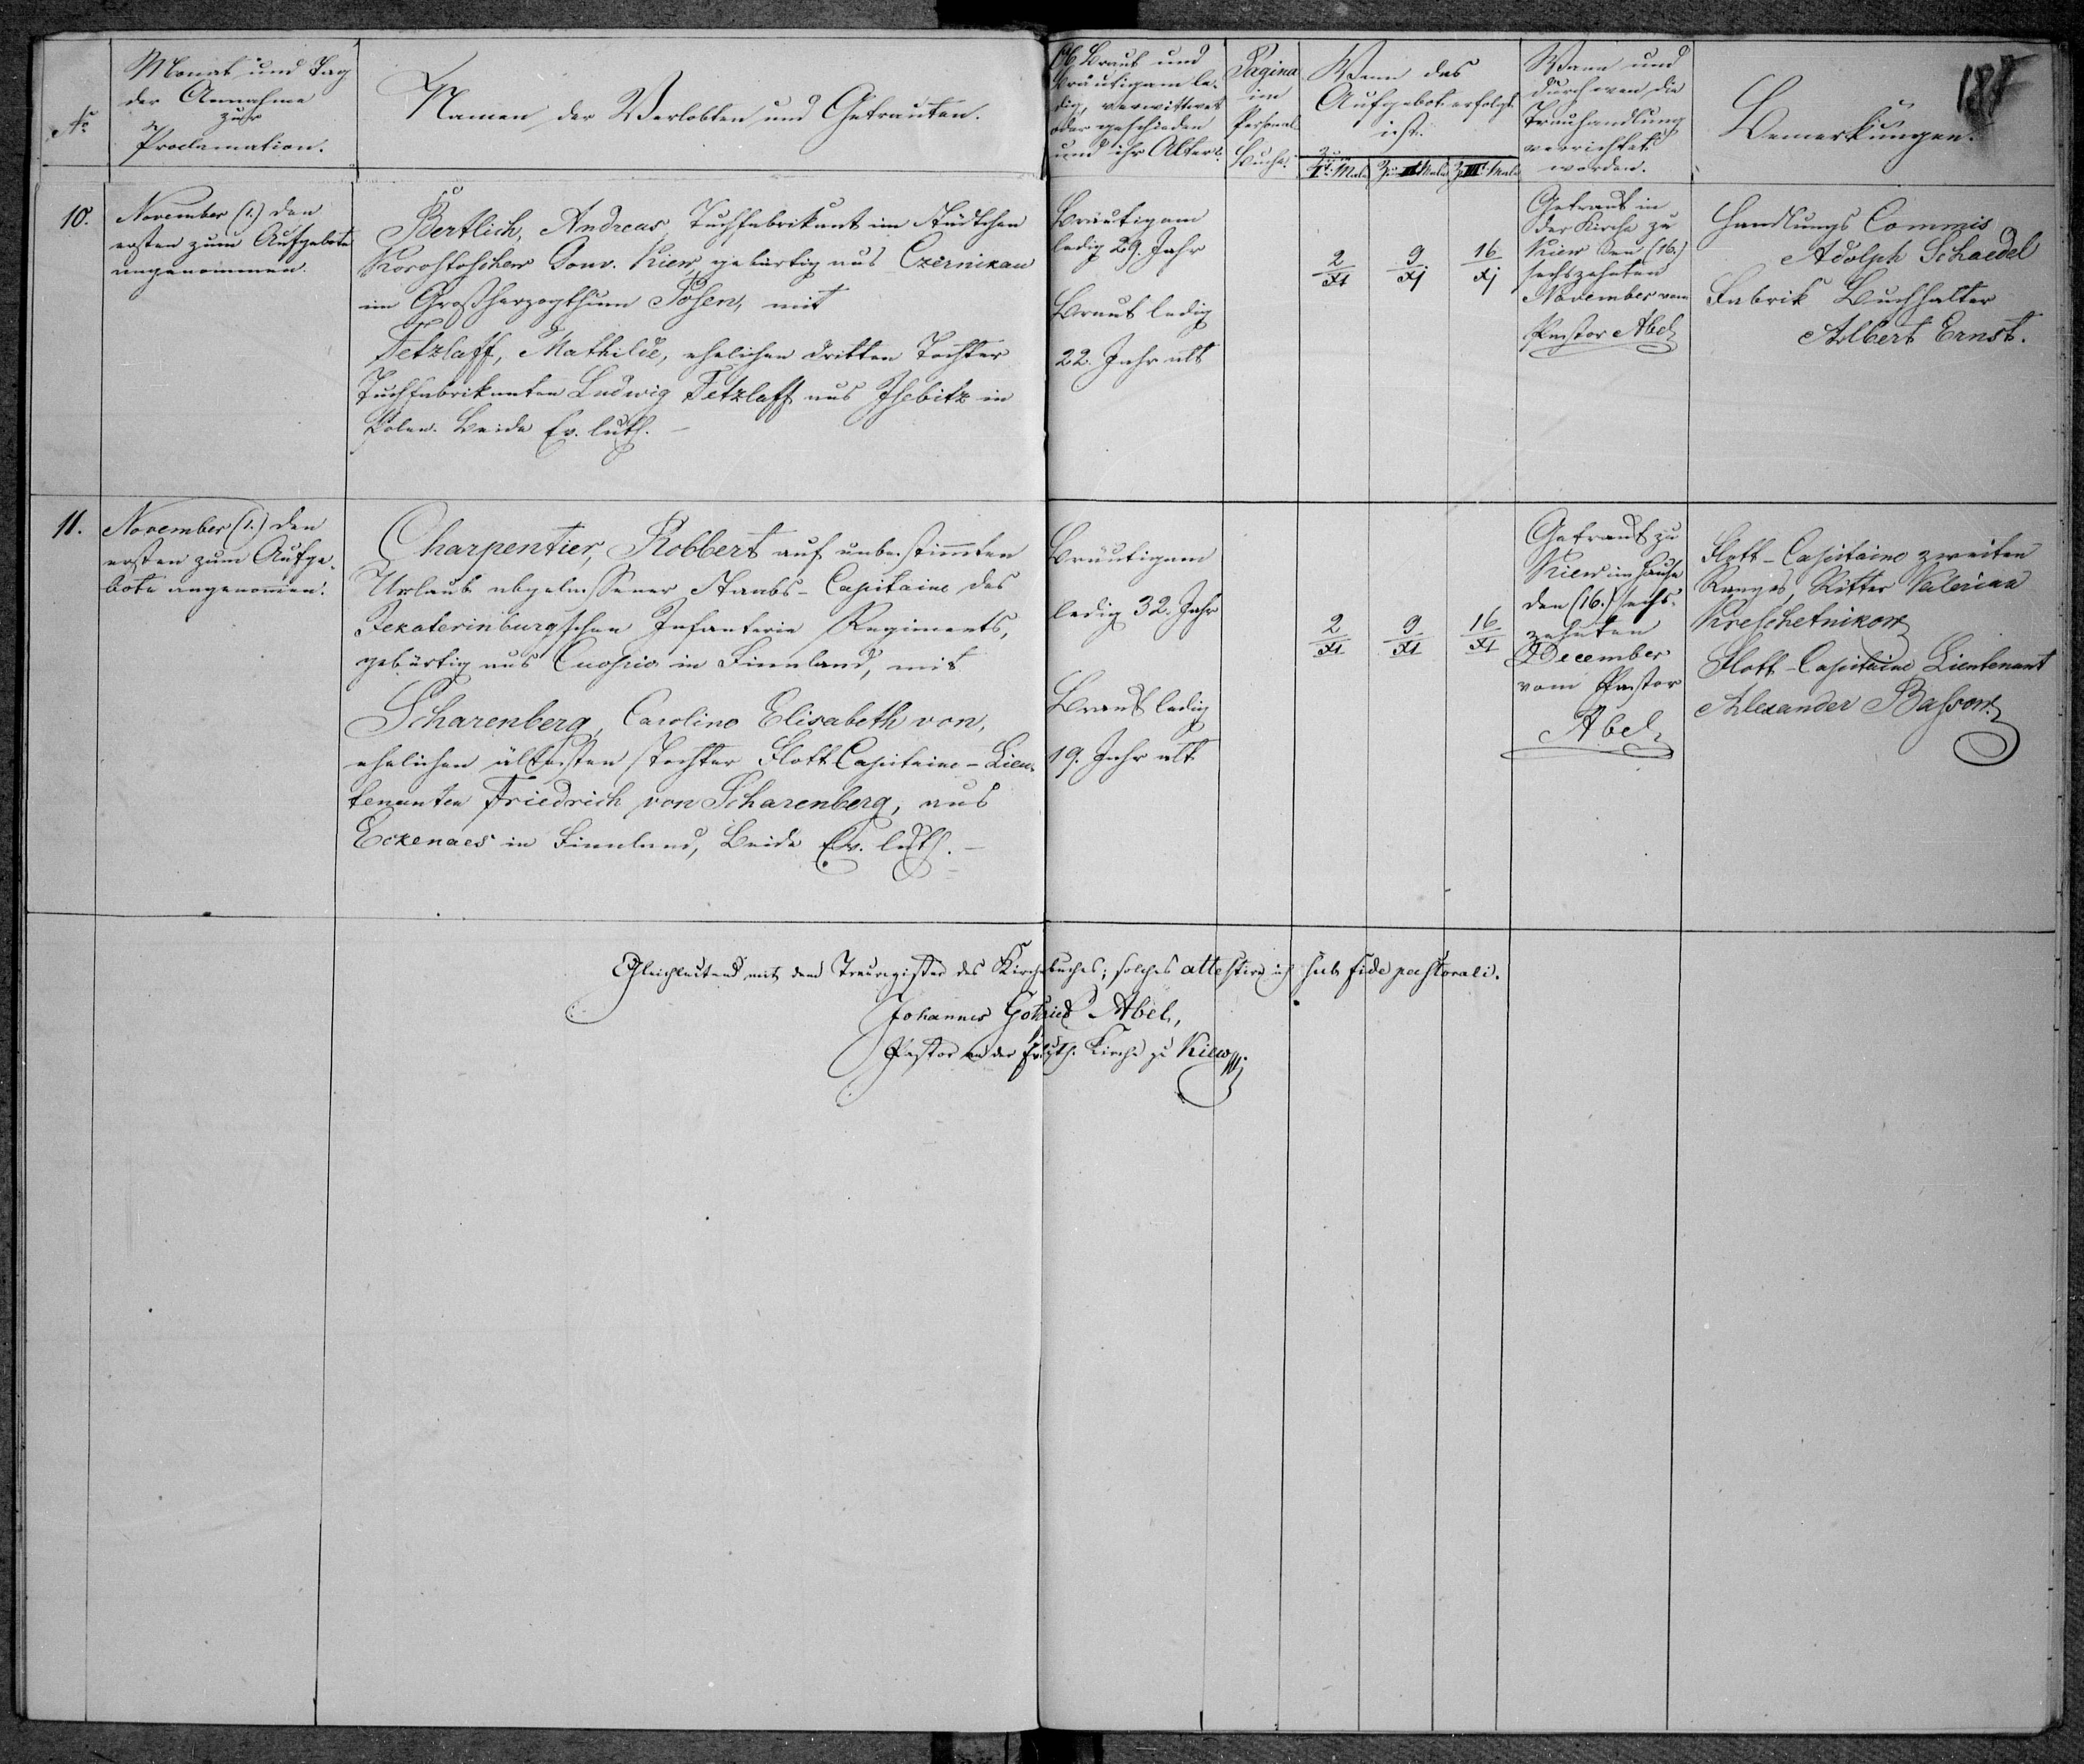 188
No
Monat und Tag
der Annahme
zur
Proclamation.
Namen der Verlobten und Getrauten.
Ob Braut und
Bräutigam le-
dig, verwittwet
oder geschieden
und ihr Alter.
Pagina
im
Personal
Buche.
Wann das
Aufgebot erfolgt
ist.
zum
I. Male Zu II Male Z. III. Male
Wann und
durch wen die
Trauhandlung
verrichtet
worden.
Bemerkungen.
10.
November (1.) den
ersten zum Aufgebote
angenommen.
Bertlich, Andreas, Tuchfabrikant im Städtchen
Gouv. Kiew, gebürtig aus Czernikau
im Großherzogthum Posen, mit
Tetzlaff, Mathilde, ehelichen dritten Tochter
Tuchfabrikanten Ludwig Tetzlaff aus in
Polen. Beide Ev. luth. –
Bräutigam
ledig 29. Jahr
Braut ledig
22. Jahr alt
2/XI 9/Xj 16/Xj
Getraut in
der Kirche zu
Kiew den (16.)
sechszehnten
November vom
Pastor Abel
Handlungs Commis
Adolph Schaedel
Fabrik Buchhalter
Albert Ernst.
11.
November (1.) den
ersten zum Aufge-
bote angenommen.
Charpentier, Robbert auf unbestimmten
Urlaub abgelassener Staabs-Capitaine des
Jekaterinburgschen Infanterie Regiments,
gebürtig aus Cuopio in Finnland, mit
Scharenberg, Caroline Elisabeth von,
ehelichen ältesten Tochter Flott Capitaine-Lieu-
tenanten Friedrich von Scharenberg, aus
Eckenaes in Finnland, Beide Ev. luth. –
Bräutigam
ledig 32. Jahr
Braut ledig
19. Jahr alt
2/XI 9/XI 16/XI
Getraut zu
Kiew im Hause
den (16.) sechs-
zehnten
December
vom Pastor
Abel
Flott-Capitaine zweiten
Ranges, Ritter Valerian
Kreschetnikow
Flott-Capitaine Lieutenant
Alexander Bassow.
Gleichlautend mit dem Trauregister des Kirchenbuches; solches attestire ich sub fide pastorali.
Johannes Gotfried Abel,
Pastor an der Ev. luth. Kirche zu Kiew